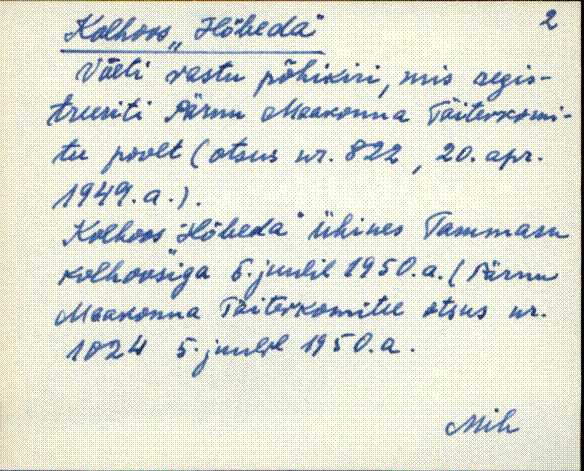 2
Kolhoos „Hõbeda"
Võeti vastu põhikiri, mis regis-
treeriti Pärnu Maakonna Täiterkomi-
tu poolt (otsus nr. 822, 20. apr.
1949. a.).
Kolhoos "Hõbeda" ühines Tammaru
kolhoosiga 5. juulil 1950. a. (Pärnu
Maakonna Täiterkomitee otsus nr.
1024 5. juulil 1950. a.
Mih